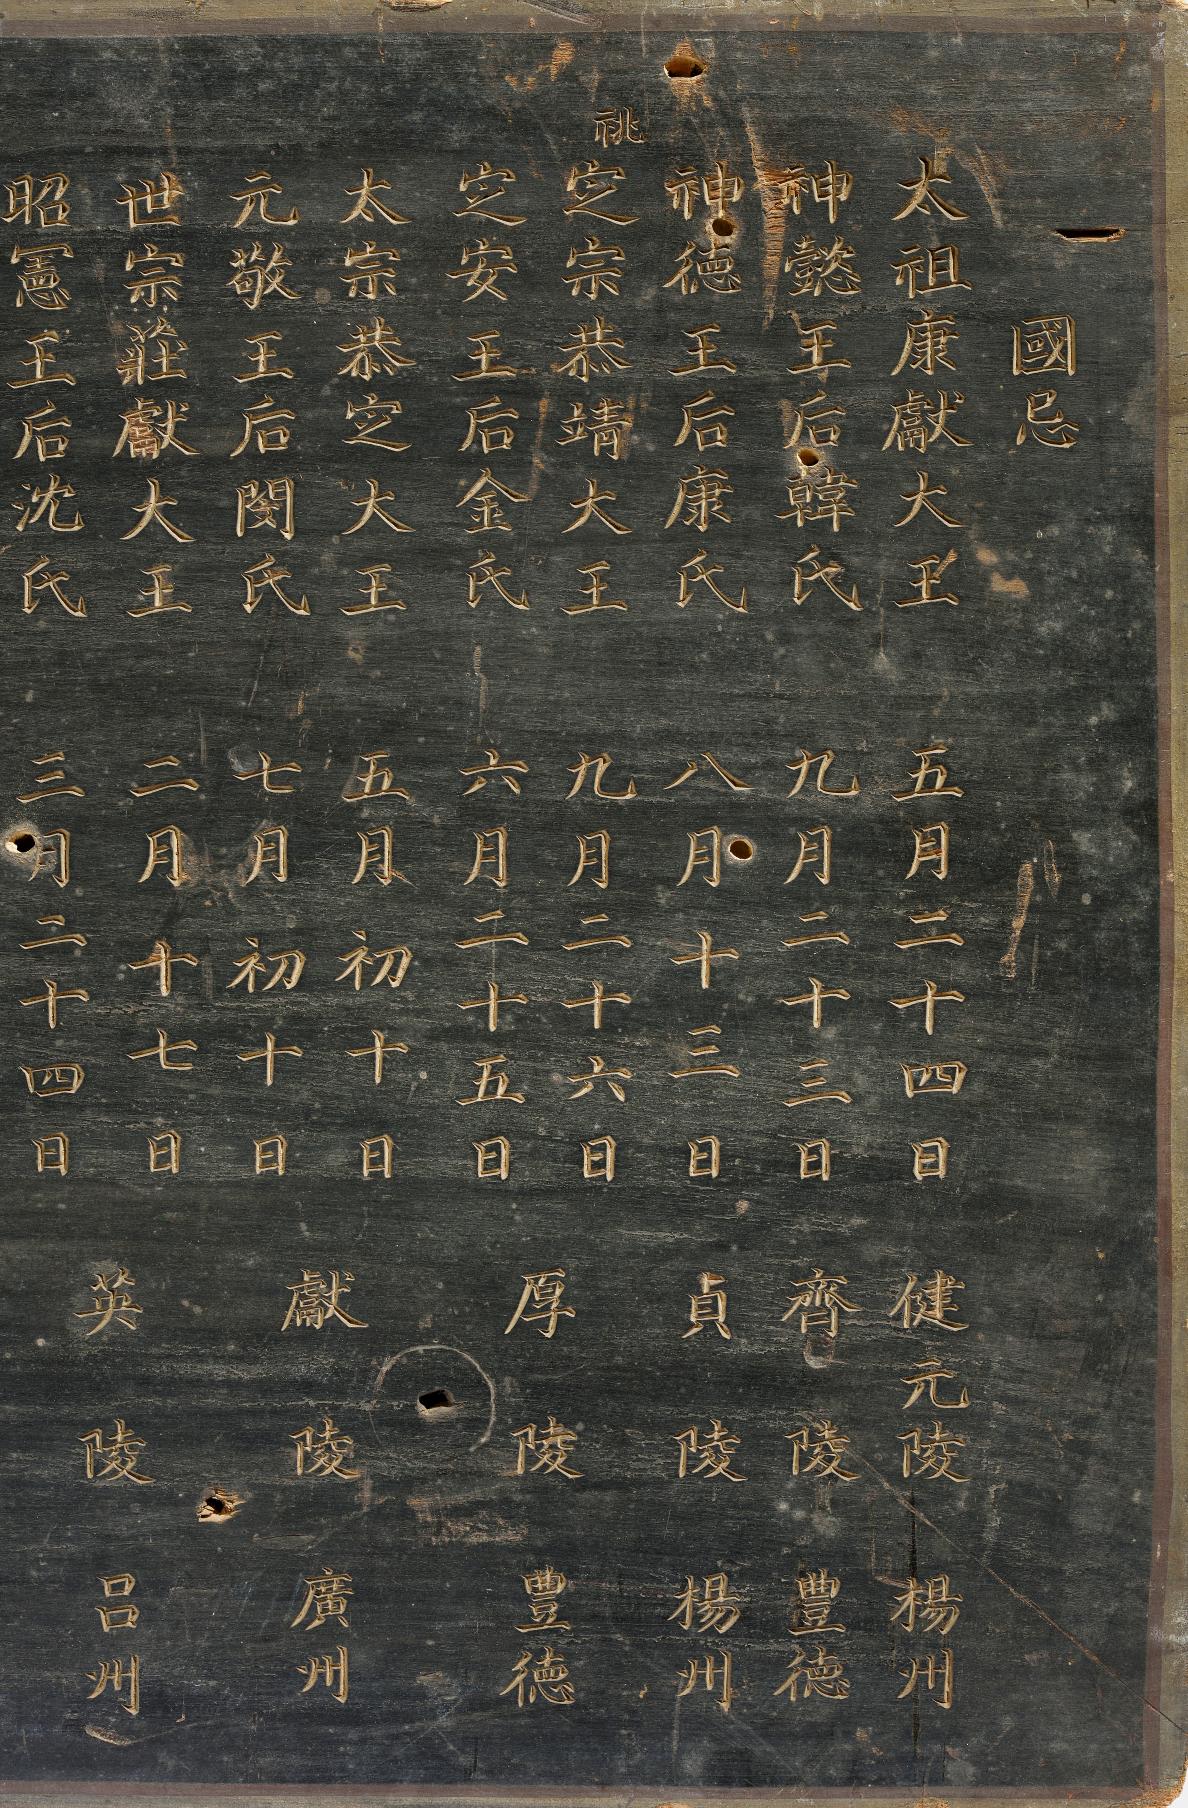 國忌
太祖康獻大王 五月二十四日 健元陵 楊州
神懿王后韓氏 九月二十三日 齊陵 豊德
神德王后康氏 八月十三日 貞陵 楊州
祧
定宗恭靖大王 九月二十六日
定安王后金氏 六月二十五日
厚陵 豊德
太宗恭定大王 五月初十日
元敬王后閔氏 七月初十日
獻陵 廣州
世宗莊獻大王 二月十七日
昭憲王后沈氏 三月二十四日
英陵 呂州